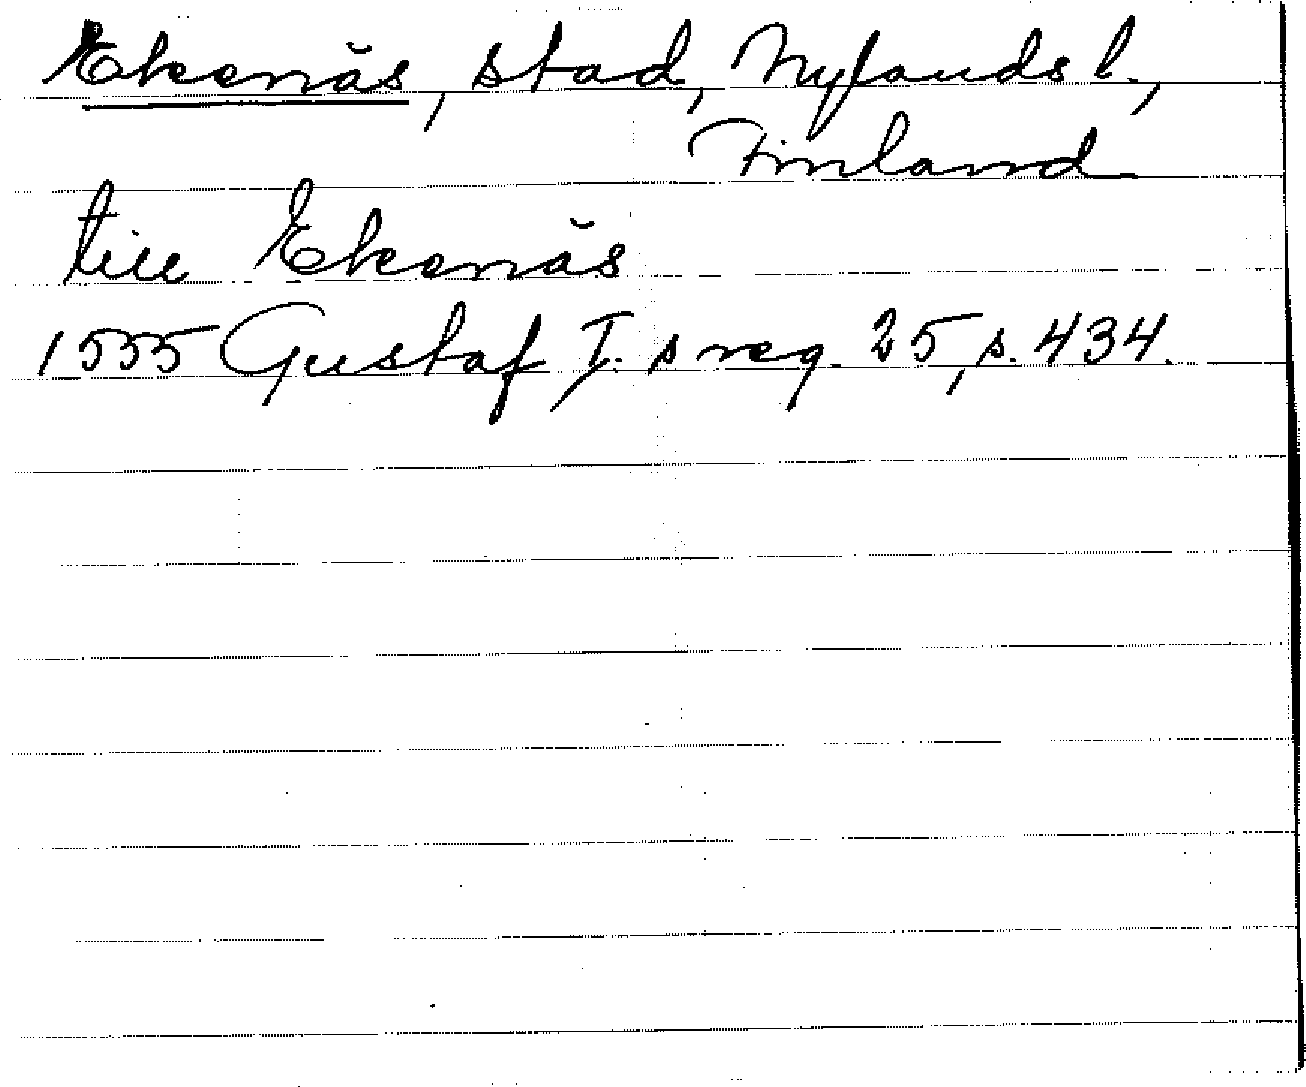 Ekenäs, stad, Nylands l.,
Finland
till Ekenäs
1555 Gustaf I:s reg. 25, s. 434.